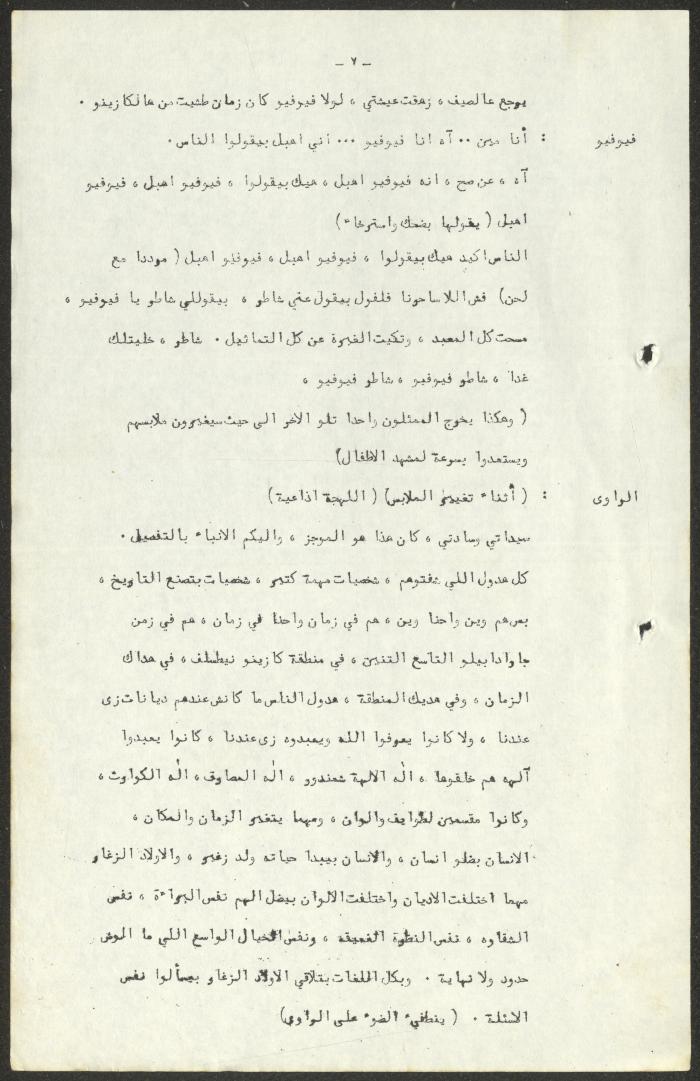 - ٧ -
يرجع عالصيف ، زهقت عيشتي ، لولا فيوفيو كان زمان طشيت من هالكازينو .
فيوفيو : أنا مين .. آه انا فيوفيو ... اني اهبل بيقولوا الناس .
آه ، عن صح ، انه فيوفيو اهبل ، هيك بيقولوا ، فيوفيو اهبل ، فيوفيو
اهبل ( يقولها بضحك واسترخاء )
الناس اكيد هيك بيقولوا ، فيوفيو اهبل ، فيوفيو اهبل ( مرددا مع
لحن ) فش اللا ساحرنا فلفول بيقول عني شاطر ، بيقوللي شاطر يا فيوفيو ،
مسحت كل المعبد ، وتكيت الغبرة عن كل التماثيل . شاطر ، خليتلك
غدا ، شاطر فيوفيو ، شاطر فيوفيو ،
( وهكذا يخرج الممثلون واحدا تلو الاخر الى حيث سيغيرون ملابسهم
ويستعدوا بسرعة لمشهد الاطفال )
الراوى : ( أثناء تغيير الملابس ) ( اللهجة اذاعية )
سيداتي وسادتي ، كان هذا هو الموجز ، واليكم الانباء بالتفصيل .
كل هدول اللي شفتوهم ، شخصيات مهمة كتير ، شخصيات بتصنع التاريخ ،
بس هم وين واحنا وين ، هم في زمان واحنا في زمان ، هم في زمن
جاوادابيلو التاسع التنين ، في منطقة كازينو نيطسلف ، في هداك
الزمان ، وفي هديك المنطقة ، هدول الناس ما كانش عندهم ديانات زى
عندنا ، ولا كانوا يعرفوا الله ويعبدوه زى عندنا ، كانوا يعبدوا
آلهه هم خلقوها ، اله الالهة شعندور ، اله المصاوف ، اله الكوارث ،
وكانوا مقسمين لطوايف والوان ، ومهما يتغير الزمان والمكان ،
الانسان بضلو انسان ، والانسان بيبدا حياته ولد زغير ، والاولاد الزغار
مهما اختلفت الاديان واختلفت الالوان بيضل الهم نفس البراءة ، نفس
الشقاوه ، نفس النظرة العميقه ، ونفس الخيال الواسع اللي ما الوش
حدود ولا نهاية . وبكل اللغات بتلاقي الاولاد الزغار بيسألوا نفس
الاسئلة . ( ينطفيء الضوء على الراوى )